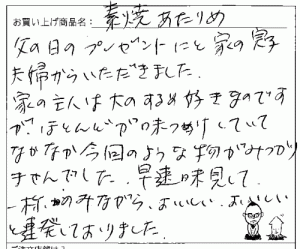 お買い上げ商品名： 素焼あたりめ
父の日のプレゼントにと家の息子
夫婦からいただきました。
家の主人は大のするめ好きなのです
が、ほとんどが味つけしていて
なかなか今回のような物がみつかり
ませんでした。早速味見して
一杯飲みながら、おいしい、おいしい
と連発しておりました。